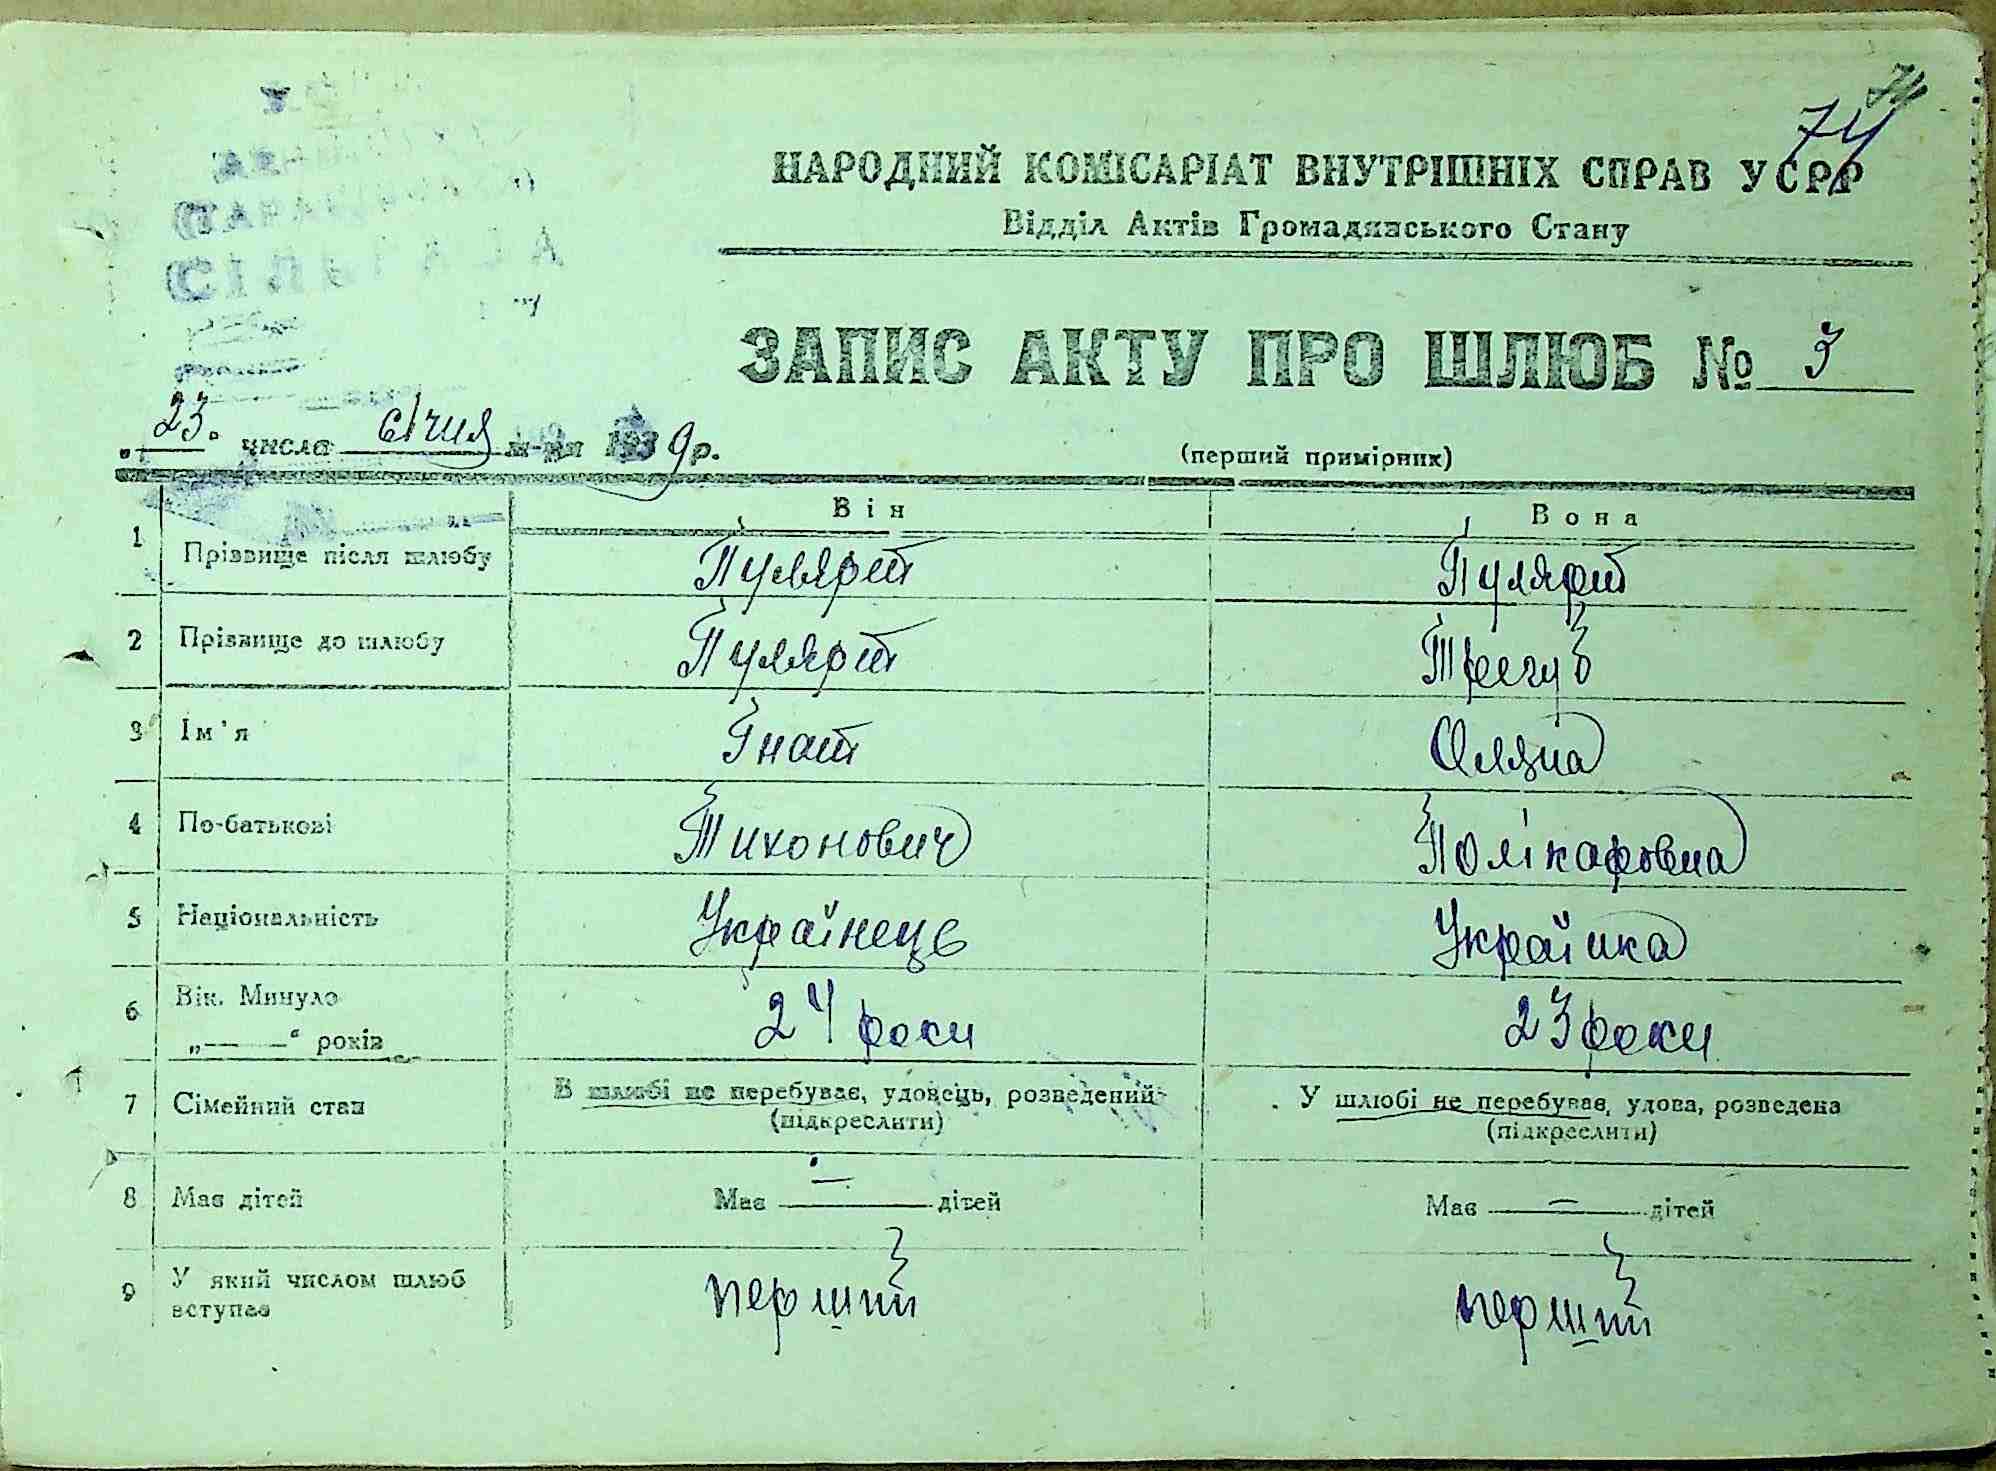 74
НАРОДНИЙ КОМІСАРІАТ ВНУТРІШНІХ СПРАВ УСРР
Відділ Актів Громадянського Стану
ЗАПИС АКТУ ПРО ШЛЮБ № 3
23. числа січня м-ця 1939 р.
(перший примірник)
Він Вона
1 Прізвище після шлюбу Пулярит Пулярит
2 Прізвище до шлюбу Пулярит Трегуб
3 Ім'я Гнат Оляна
4 По-батькові Тихонович Полікаровна
5 Національність Українець Українка
6 Вік. Минуло
„——“ років 24 роки 23 роки
7 Сімейний стан В шлюбі не перебуває, удовець, розведений У шлюбі не перебуває, удова, розведена
(підкреслити) (підкреслити)
8 Має дітей Має — дітей Має — дітей
9 У який числом шлюб
вступає перший перший